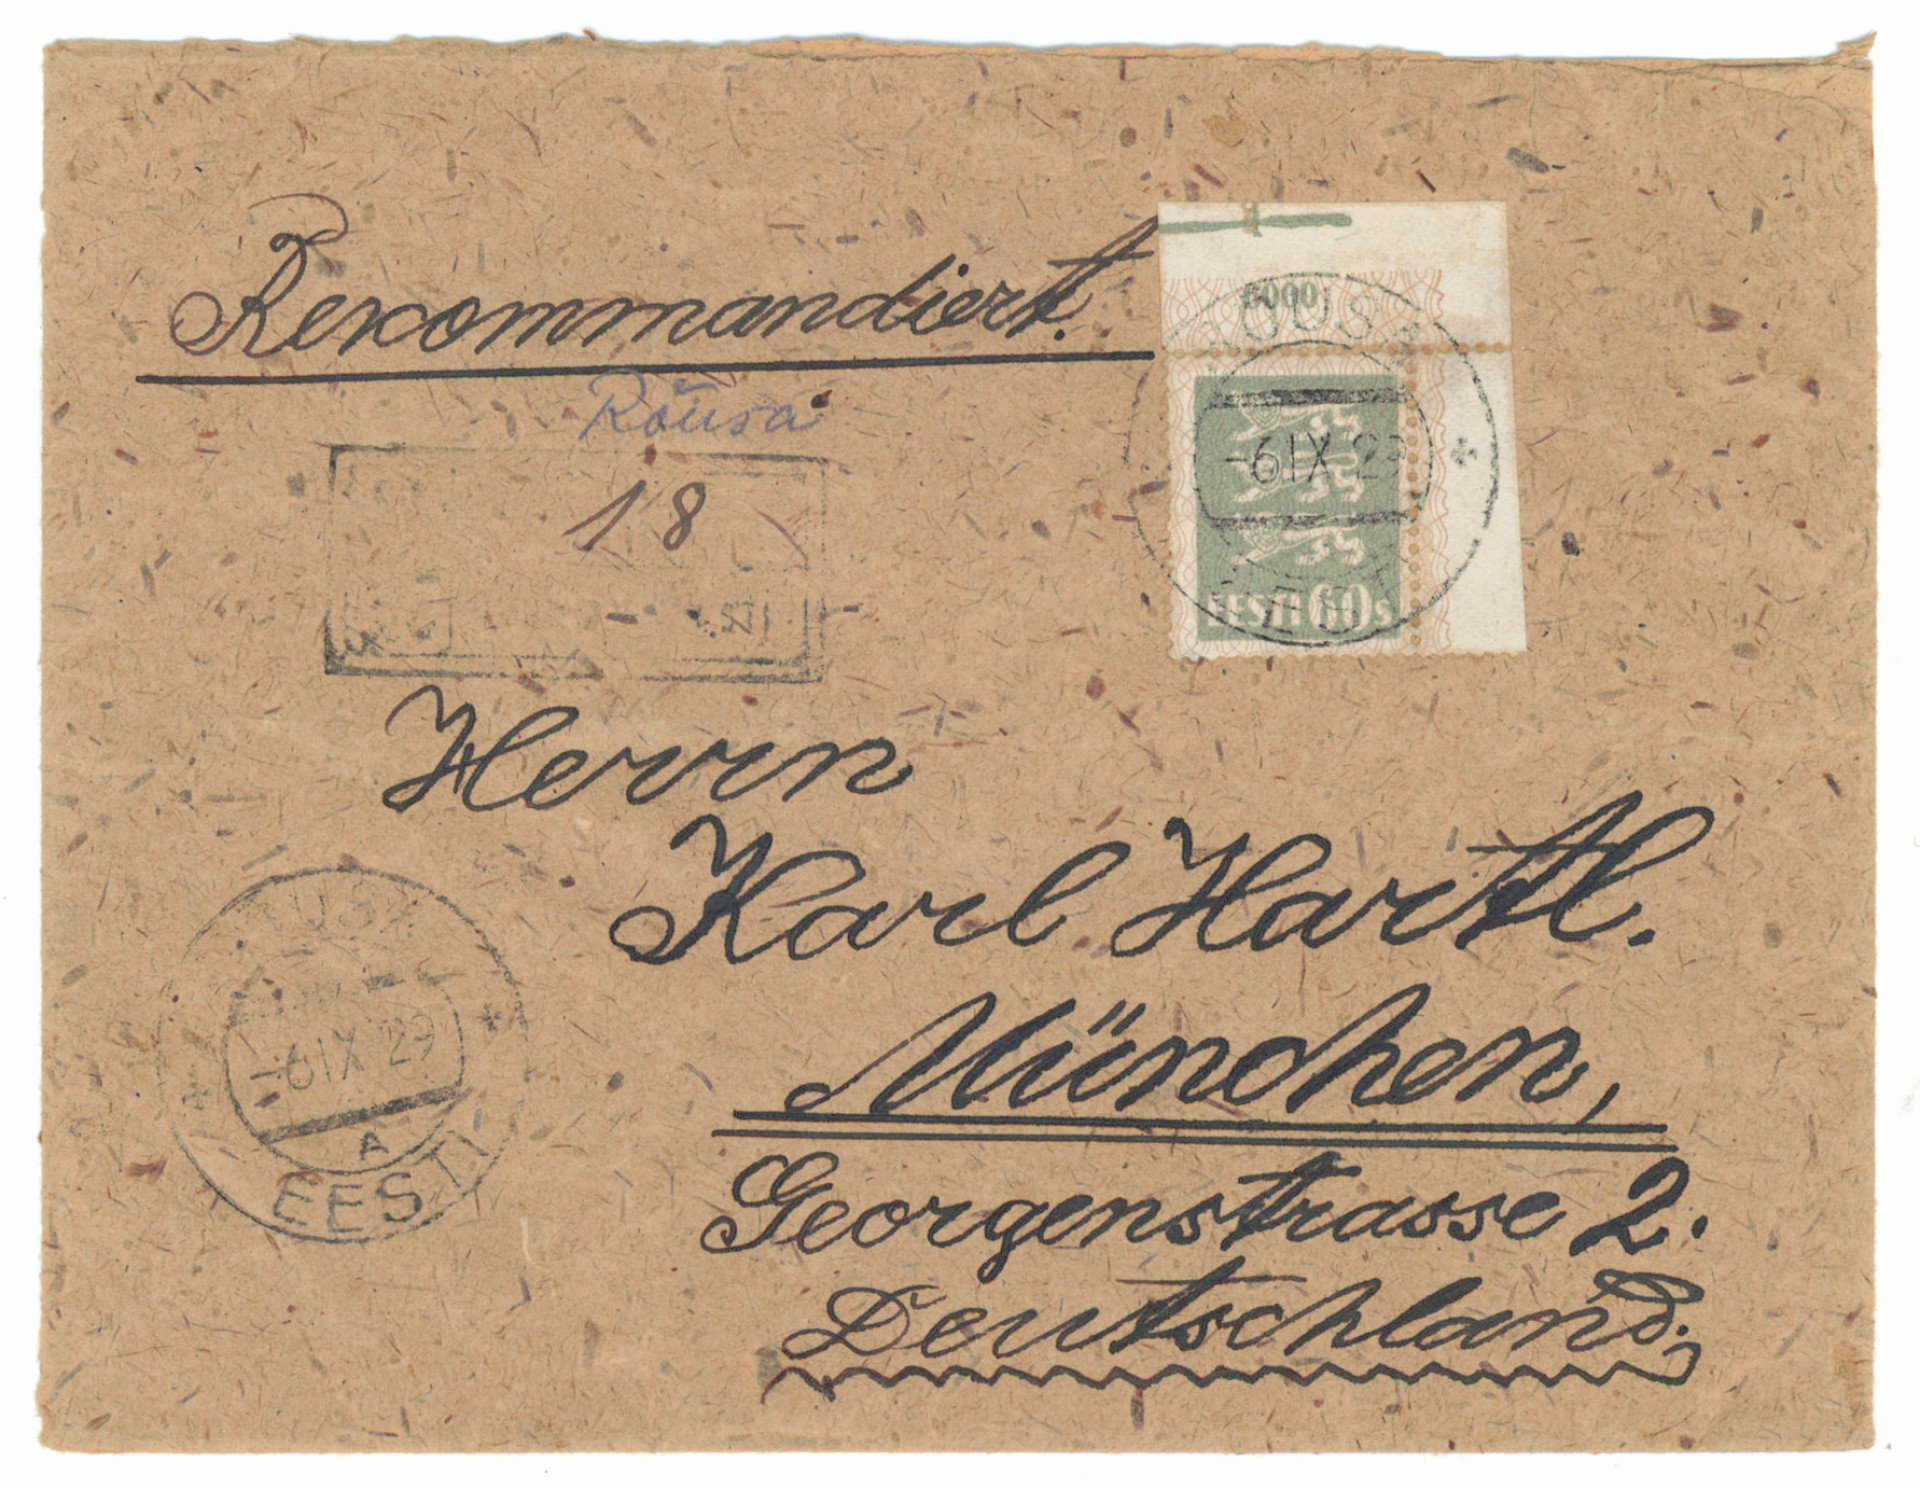 Rekommandiert.
Rõusa
18
6000
-6 IX 29
EESTI 60 s
Herrn
Karl Hartl.
München,
Georgenstrasse 2.
Deutschland.
-6 IX 29
A
EESTI